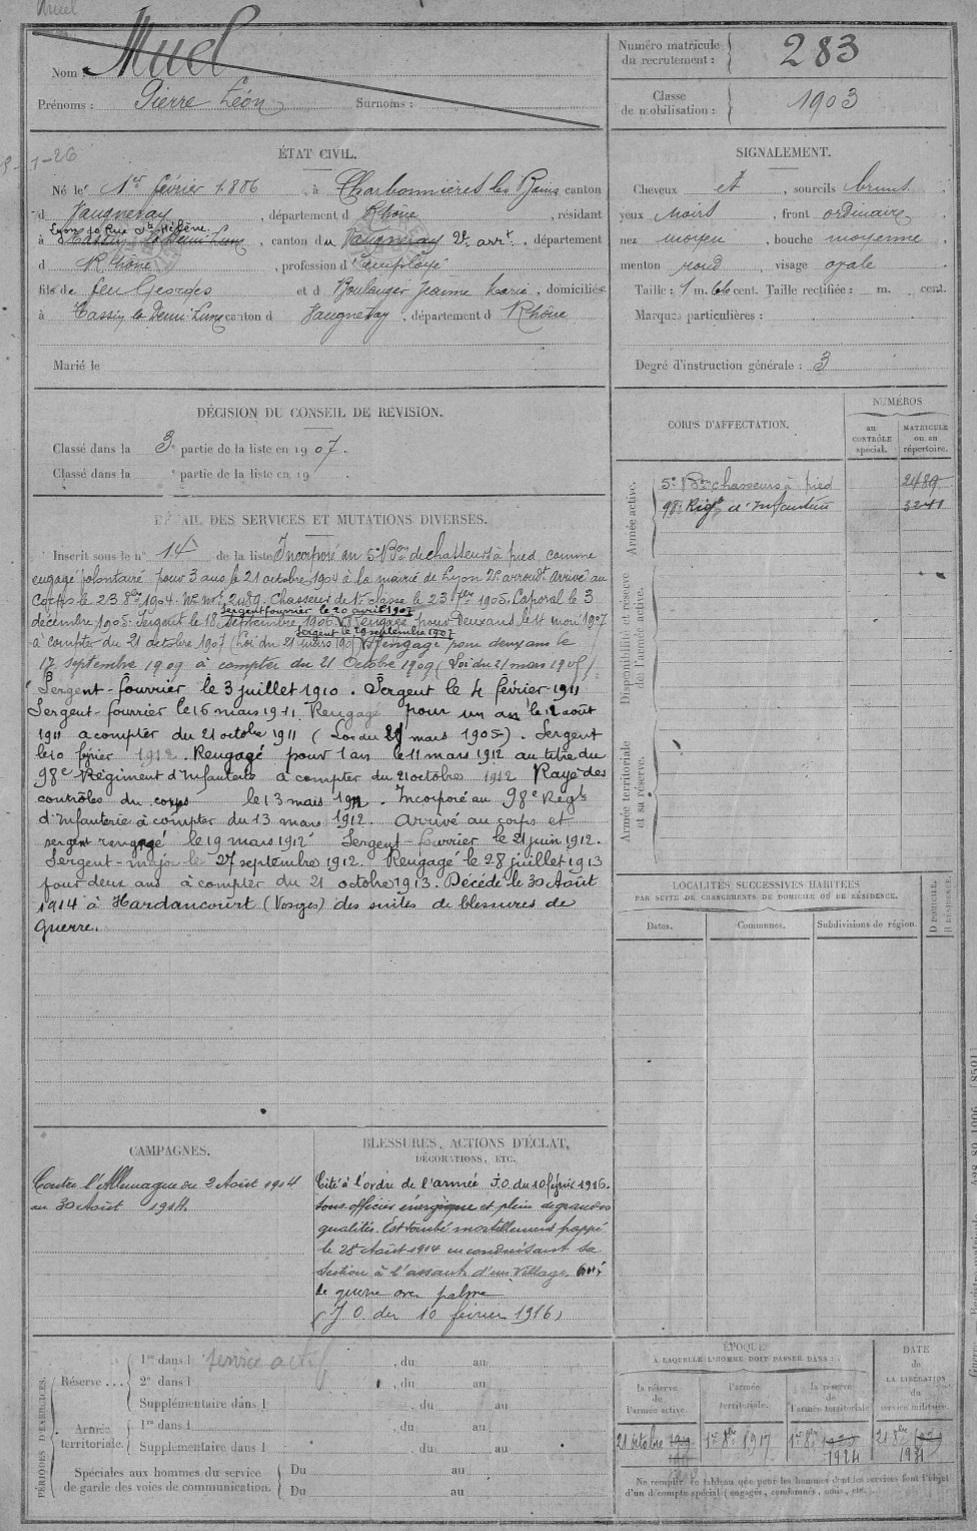 Muel
Nom : Muel
Prénoms : Pierre Léon Surnoms :
Numéro matricule du recrutement : 283
Classe de mobilisation : 1903
ÉTAT CIVIL.
Né le 1er février 1886, à Charbonnières les Bains canton
d Vaugneray, département d Rhône, résidant
Lyon 10 Rue Ste Hélène
à Tassin la Demi-Lune, canton du Vaugneray 2e arrt, département
d Rhône, profession d'employé
fils de feu Georges et d Boulanger Jeanne Marie, domiciliés
à Tassin la Demi-Lune canton d Vaugneray, département d Rhône
Marié le
SIGNALEMENT.
Cheveux et, sourcils bruns.
yeux noirs, front ordinaire,
nez moyen, bouche moyenne.
menton rond, visage ovale.
Taille : 1 m. 66 cent. Taille rectifiée : m. cent.
Marques particulières :
Degré d'instruction générale : 3
DÉCISION DU CONSEIL DE RÉVISION.
Classé dans la 3e partie de la liste en 1907.
Classé dans la e partie de la liste en 19
CORPS D'AFFECTATION.
NUMÉROS
au CONTRÔLE spécial.
MATRICULE ou au répertoire.
Armée active.
5e Bon chasseurs à pied 2489
98e Régt d'Infanterie 3241
Disponibilité et réserve de l'armée active.
Armée territoriale et sa réserve.
DÉTAIL DES SERVICES ET MUTATIONS DIVERSES.
Inscrit sous le n° 14 de la liste Incorporé au 5e Bon de chasseurs à pied comme
engagé volontaire pour 3 ans le 21 octobre 1904 à la mairie de Lyon 2e arrondt. arrivé au
Corps le 23 8bre 1904. No mle 2489. Chasseur de 1re classe le 23 7bre 1905. Caporal le 3
Sergent fourrier le 20 avril 1907
décembre 1905. Sergent le 18 septembre 1906. Rengagé pour Deux ans le 4 mai 1907
Sergent le 29 septembre 1907
à compter du 21 octobre 1907 (Loi du 21 mars 1905) Rengagé pour deux ans le
17 septembre 1909 à compter du 21 Octobre 1909 (Loi du 21 mars 1905)
Sergent-fourrier le 3 juillet 1910. Sergent le 4 février 1911
Sergent-fourrier le 16 mars 1911. Rengagé pour un an le 12 août
1911 à compter du 21 octobre 1911 (Loi du 21 mars 1905). Sergent
le 10 février 1912. Rengagé pour 1 an le 11 mars 1912 au titre du
98e Régiment d'Infanterie à compter du 21 octobre 1912 Rayé des
contrôles du corps le 13 mars 1912. Incorporé au 98e Régt
d'Infanterie à compter du 13 mars 1912. arrivé au corps et
sergent rengagé le 19 mars 1912 Sergent-fourrier le 21 juin 1912.
Sergent-major le 27 septembre 1912. Rengagé le 28 juillet 1913
pour deux ans à compter du 21 octobre 1913. Décédé le 30 Août
1914 à Hardancourt (Vosges) des suites de blessures de
guerre.
LOCALITÉS SUCCESSIVES HABITÉES
PAR SUITE DE CHANGEMENTS DE DOMICILE OU DE RÉSIDENCE.
Dates. Communes. Subdivisions de région.
D DOMICILE. R RÉSIDENCE.
CAMPAGNES.
Contre l'Allemagne du 2 Août 1914
au 30 Août 1914.
BLESSURES, ACTIONS D'ÉCLAT,
DÉCORATIONS, ETC.
Cité à l'ordre de l'armée J.O. du 10 février 1916.
sous officier énergique et plein de grandes
qualités. Est tombé mortellement frappé
le 28 Août 1914 en conduisant sa
section à l'assaut d'un village. Croix
de guerre avec palme
(J.O. du 10 février 1916)
PÉRIODES D'EXERCICES.
Réserve ... 1re dans l service actif, du au
2e dans l, du au
Supplémentaire dans l, du au
Armée territoriale. 1re dans l, du au
Supplémentaire dans l, du au
Spéciales aux hommes du service de garde des voies de communication. Du au
Du au
ÉPOQUE
A LAQUELLE L'HOMME DOIT PASSER DANS :
la réserve de l'armée active.
l'armée territoriale.
la réserve de l'armée territoriale
DATE de LA LIBÉRATION du service militaire.
21 octobre
1er 8bre 1917
1er 8bre 1923 1924
21 8bre 1929 1931
Ne remplir ce tableau que pour les hommes dont les services font l'objet
d'un décompte spécial (engagés, condamnés, omis, etc.)